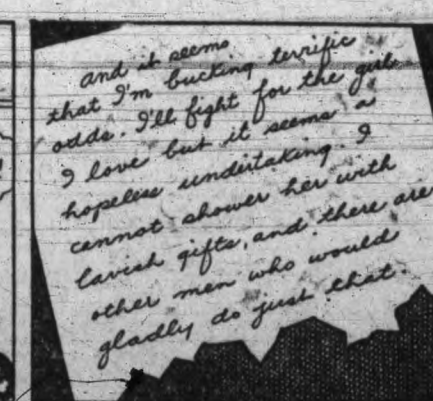 and it seems
that I'm bucking terrific
odds. I'll fight for the girl
I love but it seems a
hopeless undertaking. I
cannot shower her with
lavish gifts, and there are
other men who would
gladly do just that.